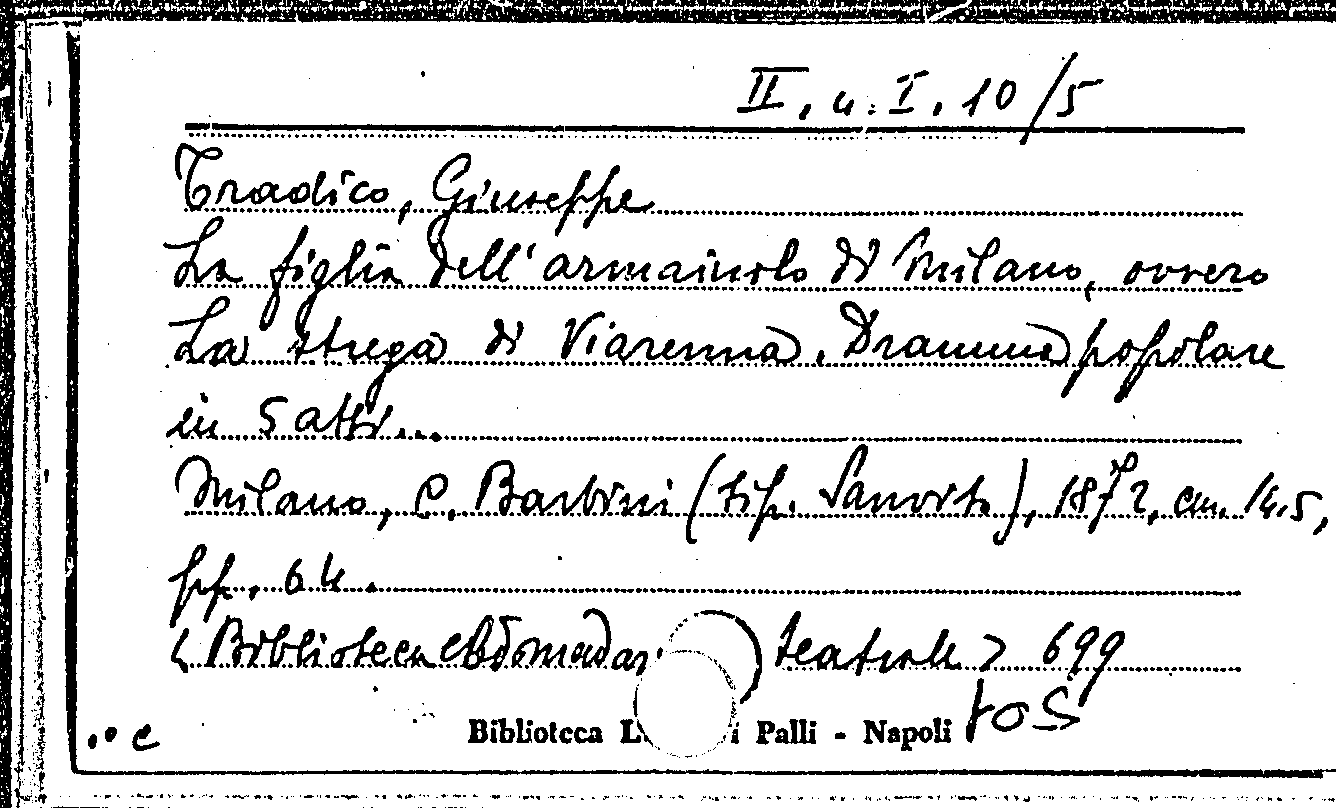 II. a. I. 10/5
Tradico, Giuseppe
La figlia dell'armaiuolo di Milano, ovvero
La strega di Viarenna. Dramma popolare
in 5 atti...
Milano, C. Barbini (tip. Sanvito), 1872, cm. 14.5,
pp. 64.
< Biblioteca ebdomadar teatrale > 699
Biblioteca L i Palli - Napoli TOS
e